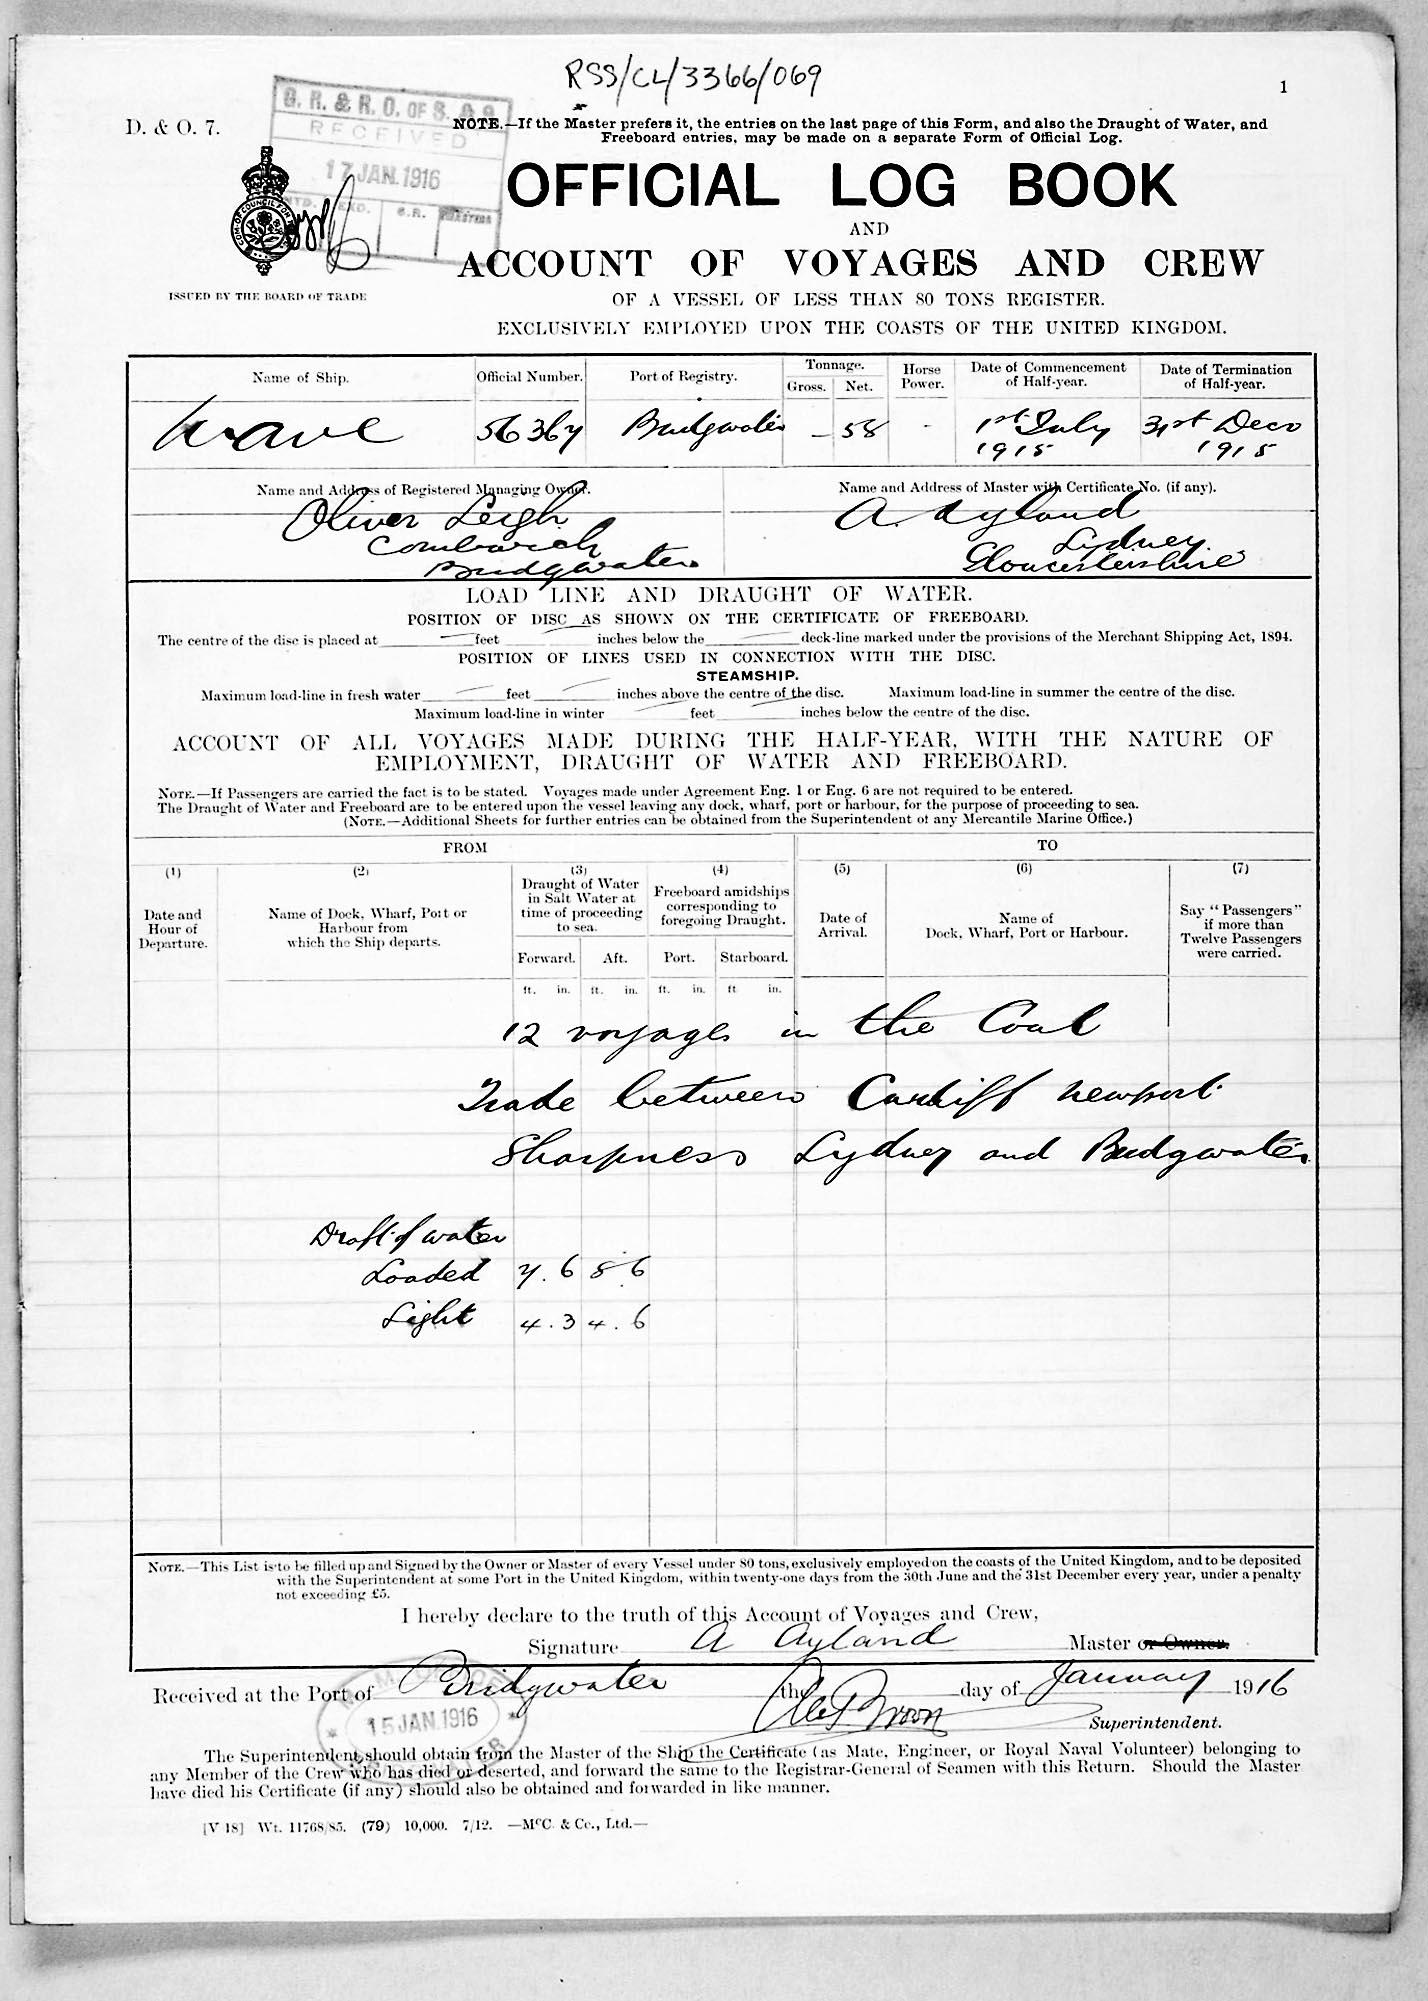 RSS/CL/3366/069
1
D. & O. 7.
G. R. & R. O. OF S. & S.
RECEIVED
17 JAN. 1916
EXD.
C.R.
NOTE.—If the Master prefers it, the entries on the last page of this Form, and also the Draught of Water, and
Freeboard entries, may be made on a separate Form of Official Log.
OFFICIAL LOG BOOK
AND
ACCOUNT OF VOYAGES AND CREW
ISSUED BY THE BOARD OF TRADE
OF A VESSEL OF LESS THAN 80 TONS REGISTER.
EXCLUSIVELY EMPLOYED UPON THE COASTS OF THE UNITED KINGDOM.
Name of Ship. Official Number. Port of Registry. Tonnage. Gross. Net. Horse Power. Date of Commencement of Half-year. Date of Termination of Half-year.
Wave 56367 Bridgwater – 58 - 1st July 1915 31st Decr 1915
Name and Address of Registered Managing Owner. Name and Address of Master with Certificate No. (if any).
Oliver Leigh A. Ayland
Combwich Lydney
Bridgwater Gloucestershire
LOAD LINE AND DRAUGHT OF WATER.
POSITION OF DISC AS SHOWN ON THE CERTIFICATE OF FREEBOARD.
The centre of the disc is placed at feet inches below the deck-line marked under the provisions of the Merchant Shipping Act, 1894.
POSITION OF LINES USED IN CONNECTION WITH THE DISC.
STEAMSHIP.
Maximum load-line in fresh water feet inches above the centre of the disc. Maximum load-line in summer the centre of the disc.
Maximum load-line in winter feet inches below the centre of the disc.
ACCOUNT OF ALL VOYAGES MADE DURING THE HALF-YEAR, WITH THE NATURE OF
EMPLOYMENT, DRAUGHT OF WATER AND FREEBOARD.
NOTE.—If Passengers are carried the fact is to be stated. Voyages made under Agreement Eng. 1 or Eng. 6 are not required to be entered.
The Draught of Water and Freeboard are to be entered upon the vessel leaving any dock, wharf, port or harbour, for the purpose of proceeding to sea.
(NOTE.—Additional Sheets for further entries can be obtained from the Superintendent of any Mercantile Marine Office.)
FROM TO
(1) (2) (3) (4) (5) (6) (7)
Date and Hour of Departure.
Name of Dock, Wharf, Port or Harbour from which the Ship departs.
Draught of Water in Salt Water at time of proceeding to sea.
Freeboard amidships corresponding to foregoing Draught.
Date of Arrival.
Name of Dock, Wharf, Port or Harbour.
Say "Passengers" if more than Twelve Passengers were carried.
Forward. Aft. Port. Starboard.
ft. in. ft. in. ft. in. ft in.
12 voyages in the Coal
Trade between Cardiff Newport
Sharpness Lydney and Bridgwater
Draft of water
Loaded 7.6 8.6
Light 4.3 4.6
NOTE.—This List is to be filled up and Signed by the Owner or Master of every Vessel under 80 tons, exclusively employed on the coasts of the United Kingdom, and to be deposited
with the Superintendent at some Port in the United Kingdom, within twenty-one days from the 30th June and the 31st December every year, under a penalty
not exceeding £5.
I hereby declare to the truth of this Account of Voyages and Crew,
Signature A Ayland Master or Owner.
Received at the Port of Bridgwater the day of January 1916
15 JAN. 1916
Superintendent.
The Superintendent should obtain from the Master of the Ship the Certificate (as Mate, Engineer, or Royal Naval Volunteer) belonging to
any Member of the Crew who has died or deserted, and forward the same to the Registrar-General of Seamen with this Return. Should the Master
have died his Certificate (if any) should also be obtained and forwarded in like manner.
[V 18] Wt. 11768/85. (79) 10,000. 7/12. —McC. & Co., Ltd.—